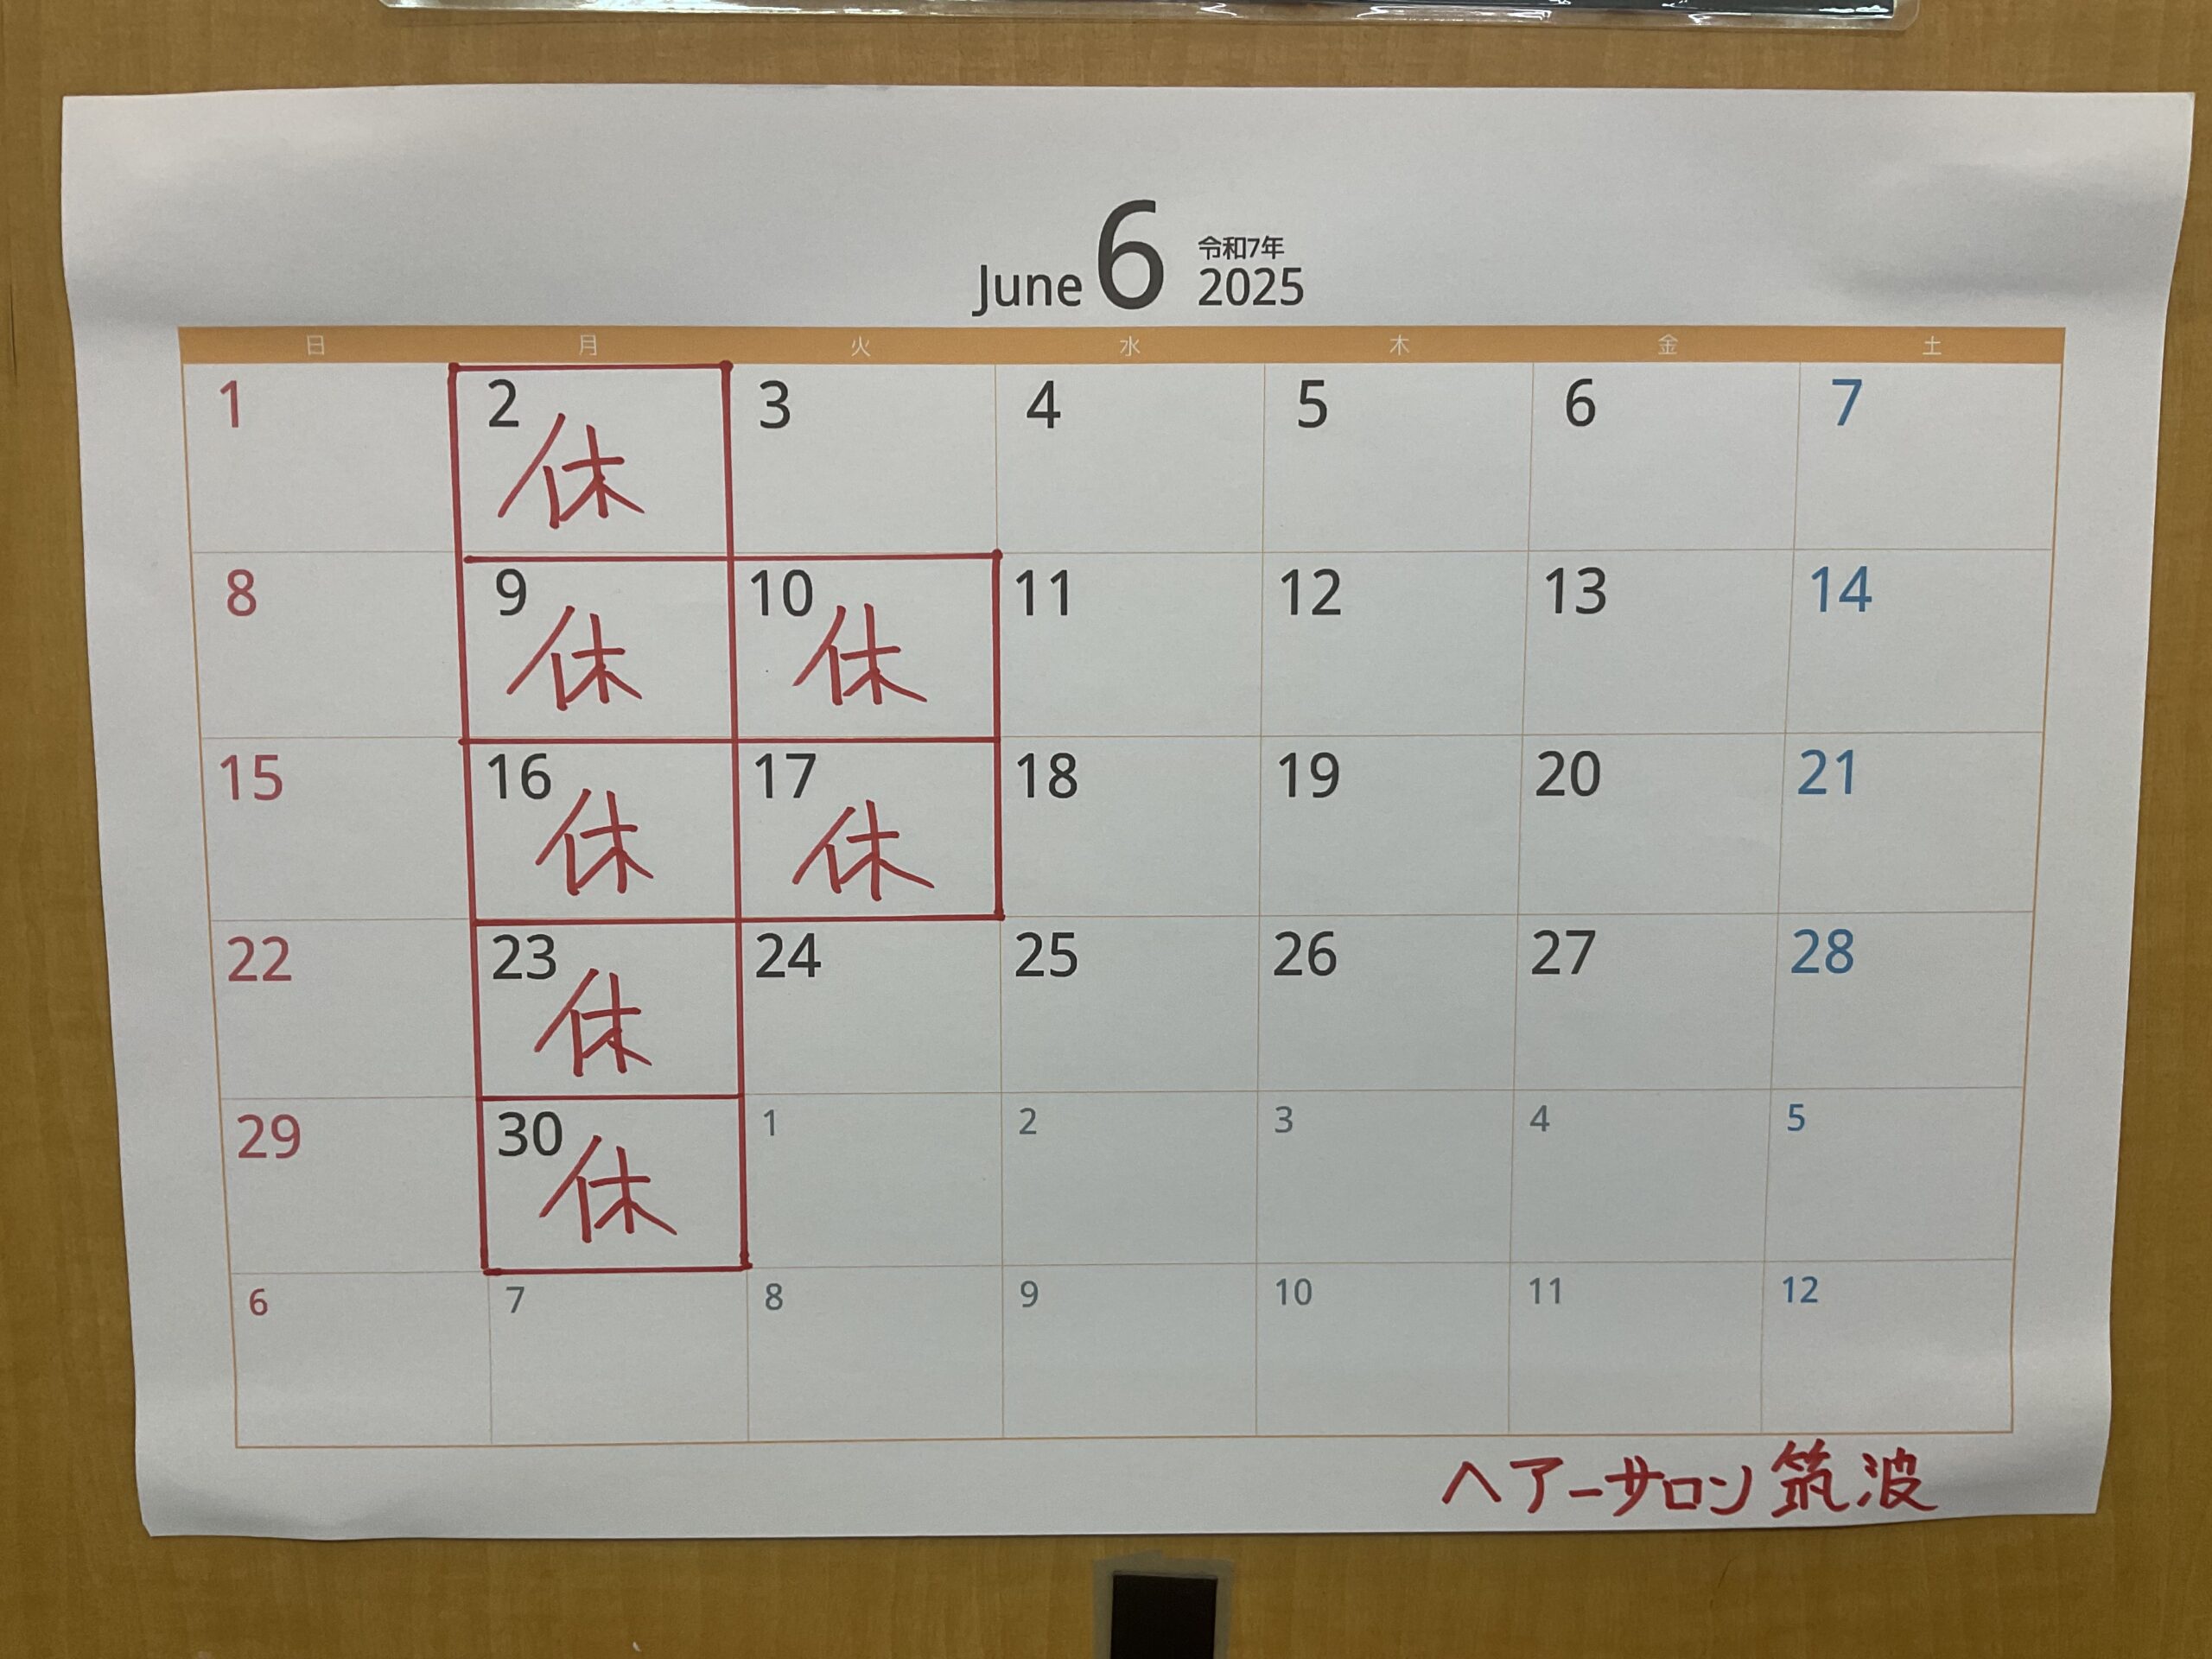 June 6 令和7年 2025
日 月 火 水 木 金 土
1 2 3 4 5 6 7
休
8 9 10 11 12 13 14
休 休
15 16 17 18 19 20 21
休 休
22 23 24 25 26 27 28
休
29 30 1 2 3 4 5
休
6 7 8 9 10 11 12
ヘアーサロン筑波